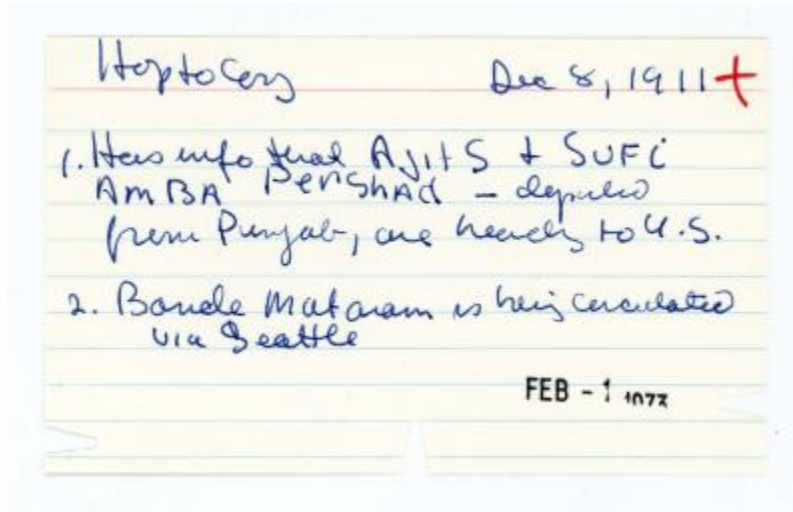 Hop to Cory Dec 8, 1911 +
1. Has info that Ajit S + SUFi
AMBA PERSHAd –
from Punjab, are heading to U.S.
2. Bande Mataram is being circulated
via Seattle
FEB - 1 1973